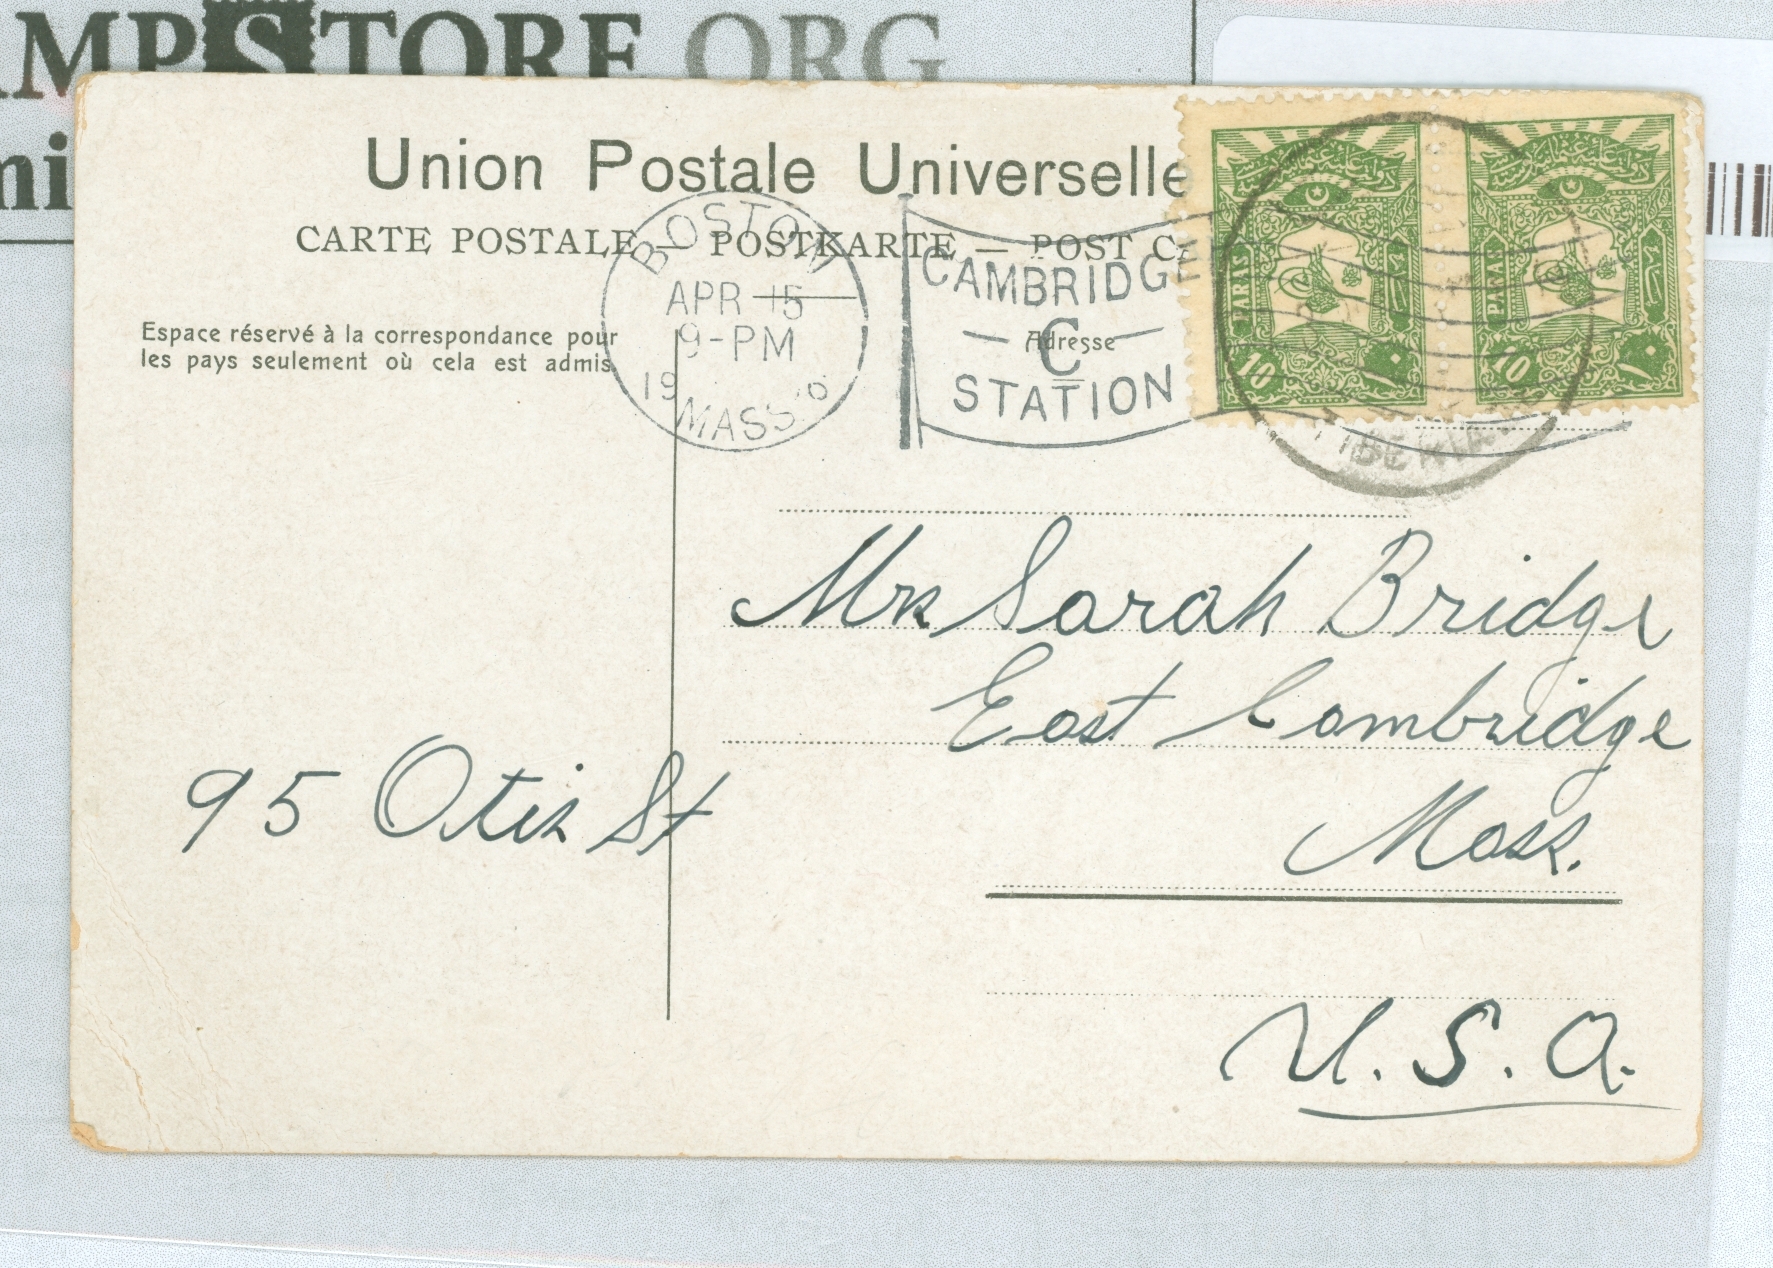 MPSTORE.ORG
Union Postale Universelle
CARTE POSTALE — POSTKARTE — POST CA
Espace réservé à la correspondance pour
les pays seulement où cela est admis.
Adresse
BOSTON
APR 15
9-PM
19
MASS.
CAMBRIDGE
C
STATION
PARAS
10
١٠
PARAS
10
١٠
Mrs Sarah Bridge
East Cambridge
95 Otis St
Mass.
U.S.A.